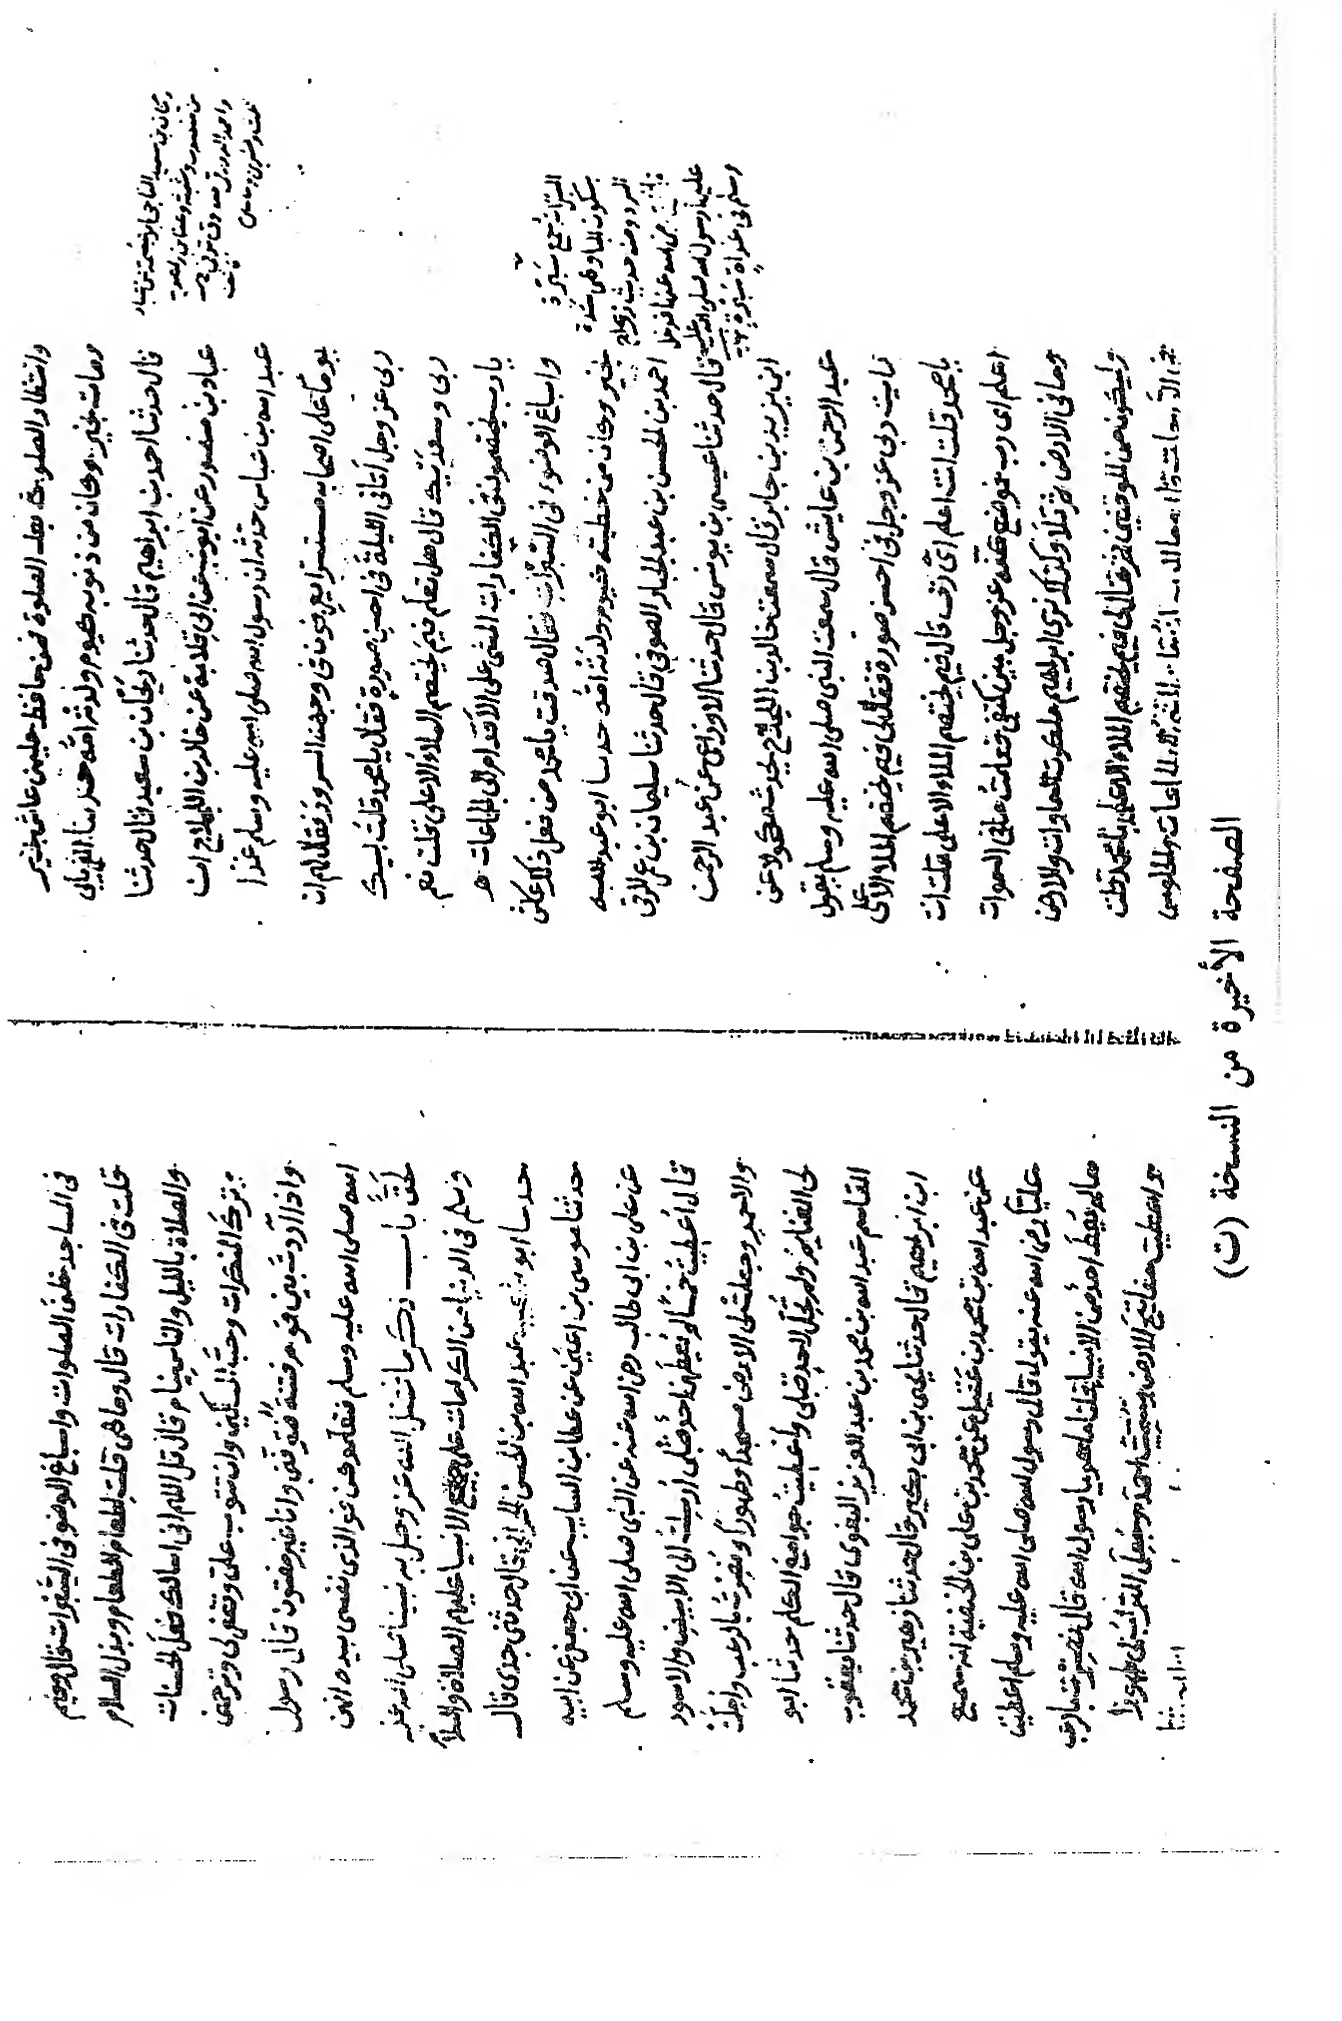 وانتظار الصلوة بعد الصلوة فمن حافظ عليهن عاش بخير
ومات بخير وكان من ذنوبه كيوم ولدته امه حدثنا الفريابي
قال حدثنا احمد بن ابراهيم قال حدثنا ريحان بن سعيد قال حدثنا
عباد بن منصور عن ايوب عن ابي قلابة عن خالد بن اللجلاج ان
عبد الله بن عباس حدثه ان رسول الله صلى الله عليه وسلم غدا
يوما على اصحابه مستبشرا يعرفون في وجهه السرور فقال لهم ان
ربي عز وجل أتاني الليلة في احسن صورة فقال يا محمد قلت لبيك
ربي وسعديك قال هل تعلم فيم يختصم الملاء الاعلى قلت نعم
يا رب يختصمون في الكفارات المشي على الأقدام الى الجماعات
واسباغ الوضوء في السبرات فقال صدقت يا محمد من فعل ذلك عاش
بخير وكان من خطيته كيوم ولدته امه حدثنا ابو عبد الله
احمد بن الحسن بن عبد الجبار الصوفي قال حدثنا سليمان بن عمر الرقي
قال حدثنا عيسى بن يونس قال حدثنا الاوزاعي عن عبد الرحمن
ابن يزيد بن جابر قال سمعت خالد بن اللجلاج يحدث مكحولا عن
عبد الرحمن بن عايش قال سمعت النبي صلى الله عليه وسلم يقول
رايت ربي عز وجل في احسن صورة فقال لي فيم يختصم الملا الاعلى
يا محمد قلت انت اعلم اي رب قال فيم يختصم الملاء الاعلى قلت انت
اعلم اي رب فوضع كفه عز وجل بين كتفي فعلمت ما في السموات
وما في الارض ثم تلا وكذلك نري ابراهيم ملكوت السماوات والارض
وليكون من الموقنين ثم قال لي فيم يختصم الملاء الاعلى يا محمد قلت
ريحان بن سعيد الناجي
السبرات جمع سبرة
بسكون الباء وهي شدة
البرد ومنه حديث زواج
فاطمة رضي الله عنها فدخل
عليها رسول الله صلى الله عليه
وسلم في غداة سبرة
في المساجد خلف الصلوات واسباغ الوضو في السبرات قال وفيم
قلت في الكفارات قال وما هي قلت اطعام الطعام وبذل السلام
والصلاة بالليل والناس نيام قال قل اللهم اني اسالك فعل الحسنات
وترك المنكرات وحب المساكين وان تتوب علي وتغفر لي وترحمني
واذا أردت بين قوم فتنة فتوفني وانا غير مفتون قال رسول
الله صلى الله عليه وسلم فتعلموهن فو الذي نفسي بيده انهن
لحق باب ذكر ما فضل الله عز وجل به نبينا صلى الله عليه
وسلم في الدنيا من الكرامات على جميع الانبيا عليهم الصلاة والسلام
حدثنا ابو شعيب عبد الله بن الحسن الحراني قال حدثني جدي قال
حدثنا موسى بن اعين عن عطا بن السايب عن ابي جعفر عن ابيه
عن علي بن ابي طالب رضي الله عنه عن النبي صلى الله عليه وسلم
قال أعطيت خمسا لم يعطهن احد قبلي أرسلت الى الابيض والاسود
والاحمر وجعلت لي الارض مسجدا وطهورا ونصرت بالرعب وأحلت
لي الغنايم ولم تحل لاحد قبلي واعطيت جوامع الكلم حدثنا ابو
القاسم عبد الله بن محمد بن عبد العزيز البغوي قال حدثنا يعقوب
ابن ابراهيم قال حدثنا يحيى بن ابي بكير قال حدثنا زهير بن محمد
عن عبد الله بن محمد بن عقيل عن محمد بن علي بن الحنفية انه سمع
عليا رضي الله عنه يقول قال رسول الله صلى الله عليه وسلم اعطيت
مالم يعط احد من الانبيا قلنا ما هو يا رسول الله قال نصرت بالرعب
و اعطيت مفاتيح الارض وسميت احمد وجعل التراب لي طهورا
الصفحة الأخيرة من النسخة (ت)